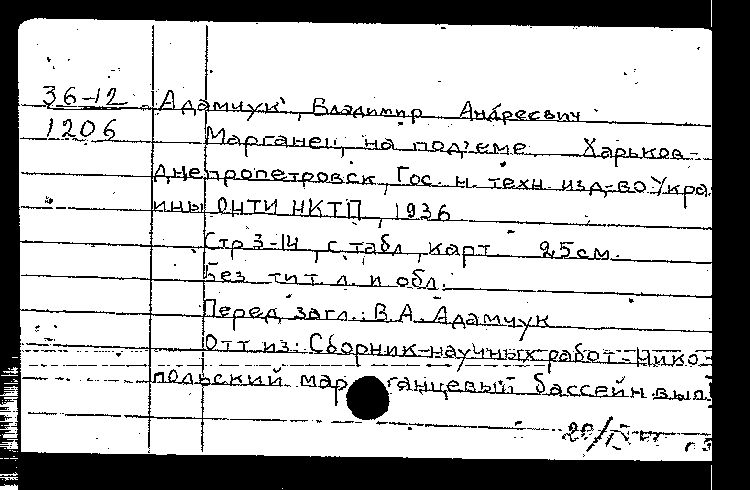 36-12 Адамчук, Владимир Андреевич
1206 Марганец на подъеме. Харьков-
Днепропетровск, Гос. н. техн. изд-во Укра
ины ОНТИ НКТП, 1936
Стр 3-14, с табл, карт. 25 см.
Без тит. л. и обл.
Перед загл.: В. А. Адамчук
Отт из: Сборник научных работ - Нико-
польский марганцевый бассейн. вып.